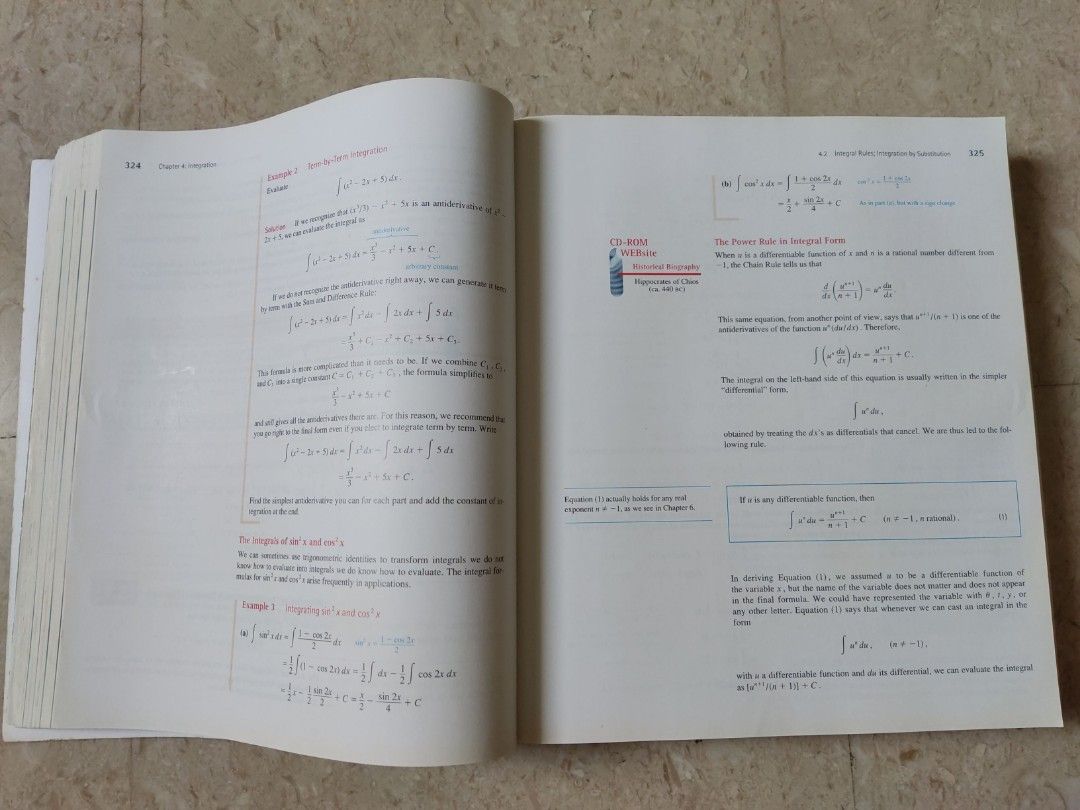 324 Chapter 4: Integration
Example 2 Term-by-Term Integration
Evaluate
∫ (x² − 2x + 5) dx.
Solution If we recognize that (x³/3) − x² + 5x is an antiderivative of x² −
2x + 5, we can evaluate the integral as
antiderivative
∫ (x² − 2x + 5) dx = x³/3 − x² + 5x + C.
arbitrary constant
If we do not recognize the antiderivative right away, we can generate it term
by term with the Sum and Difference Rule:
∫ (x² − 2x + 5) dx = ∫ x² dx − ∫ 2x dx + ∫ 5 dx
= x³/3 + C₁ − x² + C₂ + 5x + C₃.
This formula is more complicated than it needs to be. If we combine C₁, C₂,
and C₃ into a single constant C = C₁ + C₂ + C₃, the formula simplifies to
x³/3 − x² + 5x + C
and still gives all the antiderivatives there are. For this reason, we recommend that
you go right to the final form even if you elect to integrate term by term. Write
∫ (x² − 2x + 5) dx = ∫ x² dx − ∫ 2x dx + ∫ 5 dx
= x³/3 − x² + 5x + C.
Find the simplest antiderivative you can for each part and add the constant of in-
tegration at the end.
The Integrals of sin² x and cos² x
We can sometimes use trigonometric identities to transform integrals we do not
know how to evaluate into integrals we do know how to evaluate. The integral for-
mulas for sin² x and cos² x arise frequently in applications.
Example 3 Integrating sin² x and cos² x
(a) ∫ sin² x dx = ∫ (1 − cos 2x)/2 dx sin² x = (1 − cos 2x)/2
= 1/2 ∫ (1 − cos 2x) dx = 1/2 ∫ dx − 1/2 ∫ cos 2x dx
= 1/2 x − 1/2 sin 2x/2 + C = x/2 − sin 2x/4 + C
4.2 Integral Rules; Integration by Substitution 325
(b) ∫ cos² x dx = ∫ (1 + cos 2x)/2 dx cos² x = (1 + cos 2x)/2
= x/2 + sin 2x/4 + C As in part (a), but with a sign change
CD-ROM
WEBsite
Historical Biography
Hippocrates of Chios
(ca. 440 BC)
The Power Rule in Integral Form
When u is a differentiable function of x and n is a rational number different from
−1, the Chain Rule tells us that
d/dx (uⁿ⁺¹/(n + 1)) = uⁿ du/dx.
This same equation, from another point of view, says that uⁿ⁺¹/(n + 1) is one of the
antiderivatives of the function uⁿ (du/dx). Therefore,
∫ (uⁿ du/dx) dx = uⁿ⁺¹/(n + 1) + C.
The integral on the left-hand side of this equation is usually written in the simpler
"differential" form,
∫ uⁿ du,
obtained by treating the dx's as differentials that cancel. We are thus led to the fol-
lowing rule.
Equation (1) actually holds for any real
exponent n ≠ −1, as we see in Chapter 6.
If u is any differentiable function, then
∫ uⁿ du = uⁿ⁺¹/(n + 1) + C (n ≠ −1, n rational). (1)
In deriving Equation (1), we assumed u to be a differentiable function of
the variable x, but the name of the variable does not matter and does not appear
in the final formula. We could have represented the variable with θ, t, y, or
any other letter. Equation (1) says that whenever we can cast an integral in the
form
∫ uⁿ du, (n ≠ −1),
with u a differentiable function and du its differential, we can evaluate the integral
as [uⁿ⁺¹/(n + 1)] + C.